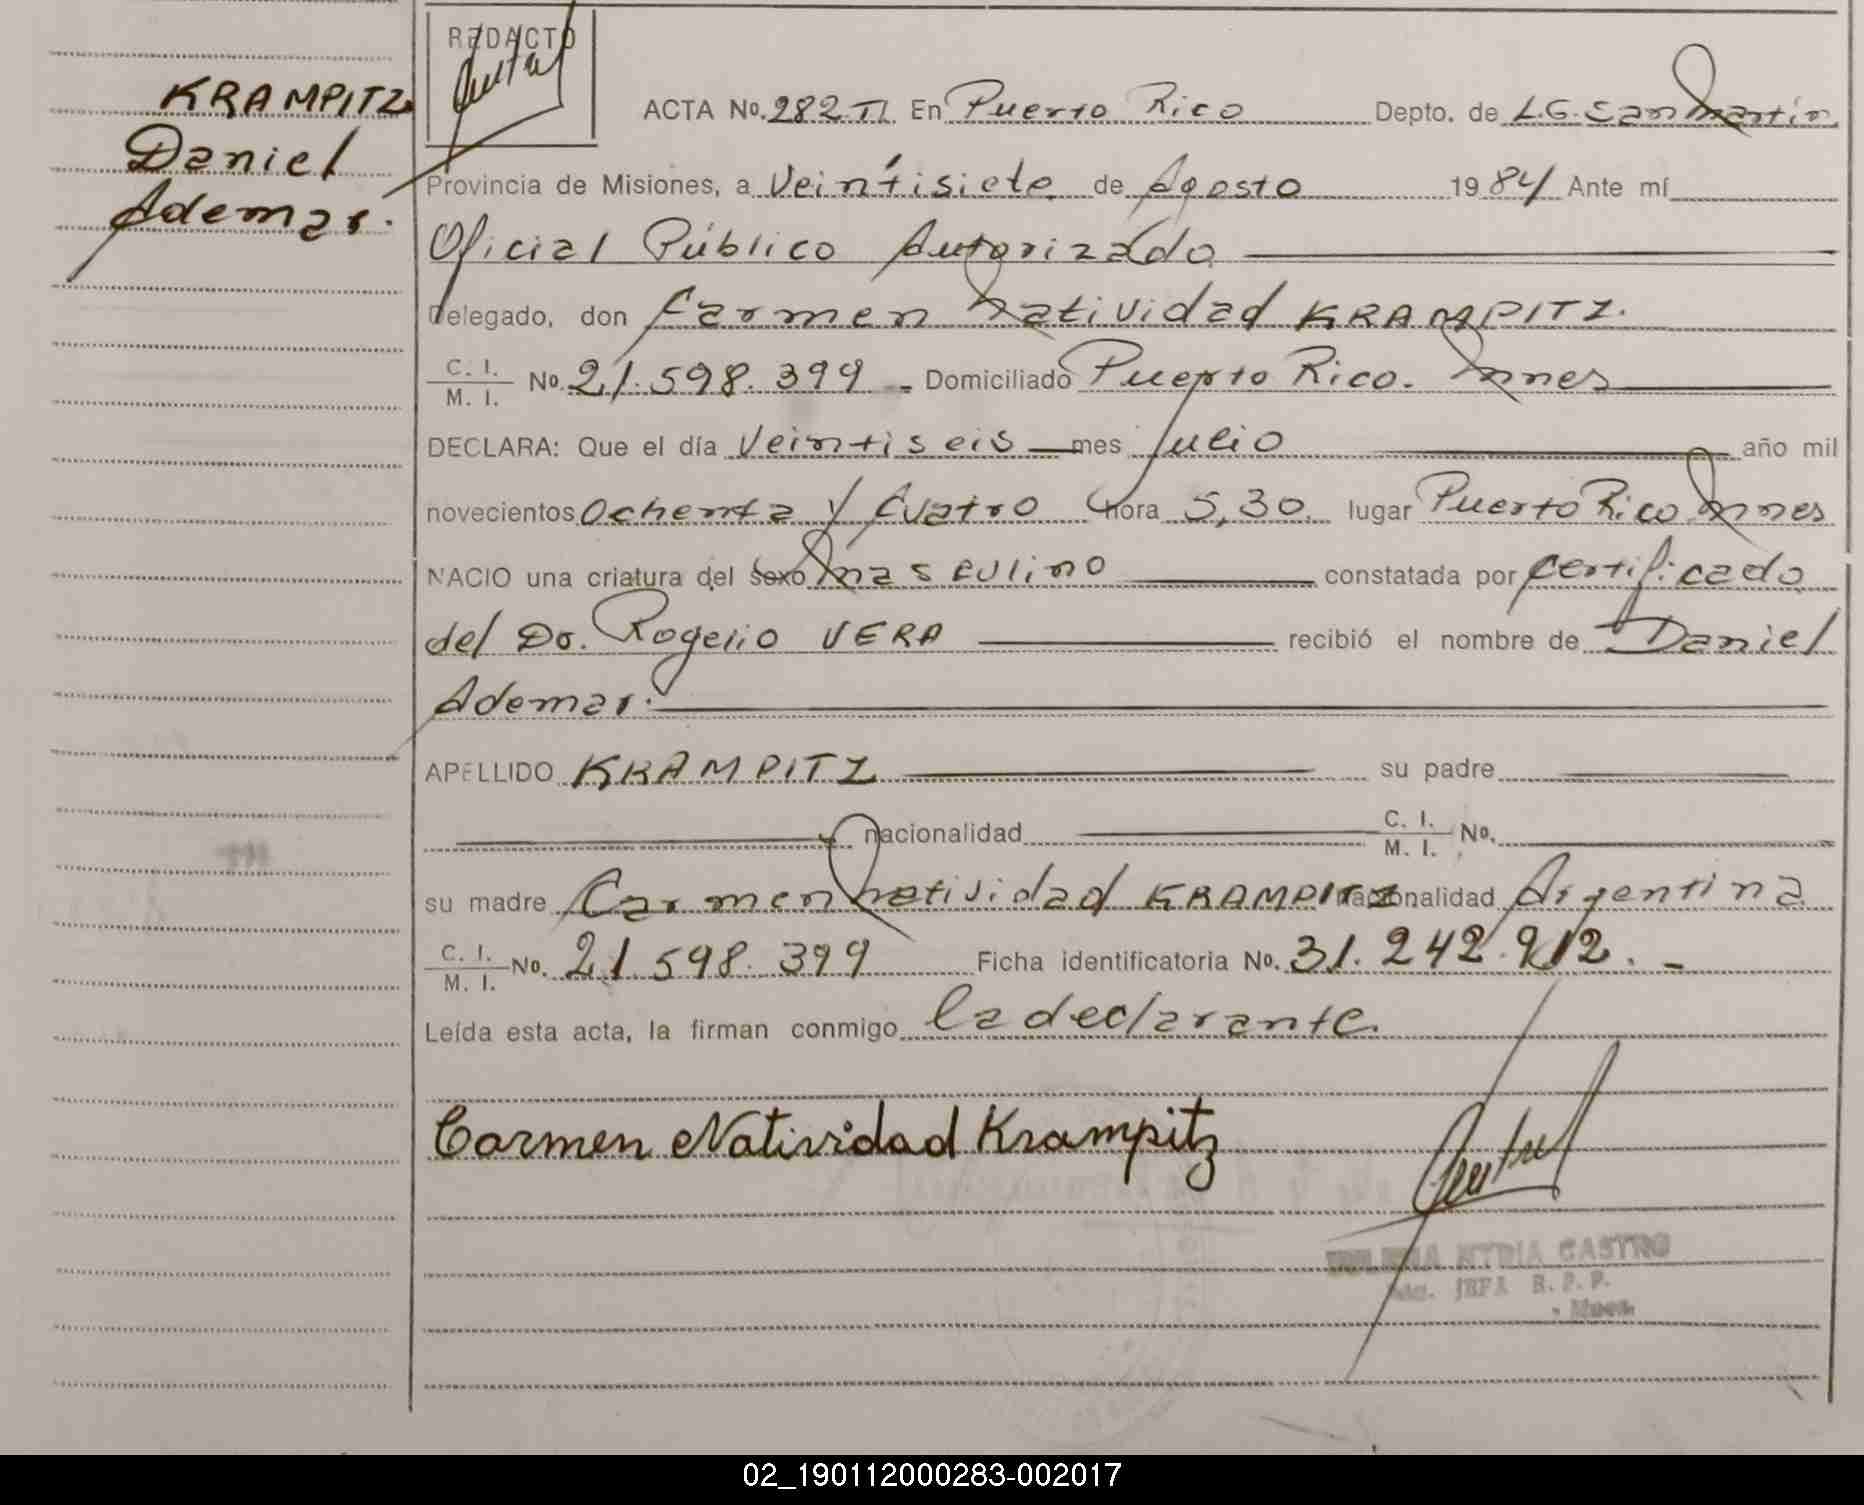 KRAMPITZ
Daniel
Ademar.
REDACTO
ACTA No. 282 TI En Puerto Rico Depto. de L.G. San Martín
Provincia de Misiones, a Veintisiete de Agosto 1984 Ante mí
Oficial Público Autorizado
Delegado, don Carmen Natividad KRAMPITZ.
C. I.
M. I. No. 21.598.399 Domiciliado Puerto Rico. Mnes
DECLARA: Que el día Veintiseis mes Julio año mil
novecientos Ochenta y Cuatro hora 5,30 lugar Puerto Rico Mnes
NACIO una criatura del sexo Masculino constatada por certificado
del Dr. Rogelio VERA recibió el nombre de Daniel
Ademar.
APELLIDO KRAMPITZ su padre
nacionalidad C. I.
M. I. No.
su madre Carmen Natividad KRAMPITZ nacionalidad Argentina
C. I.
M. I. No. 21.598.399 Ficha identificatoria No. 31.242.912.-
Leída esta acta, la firman conmigo la declarante.
Carmen Natividad Krampitz
CASTRO
JEFA R. P. P.
02_190112000283-002017